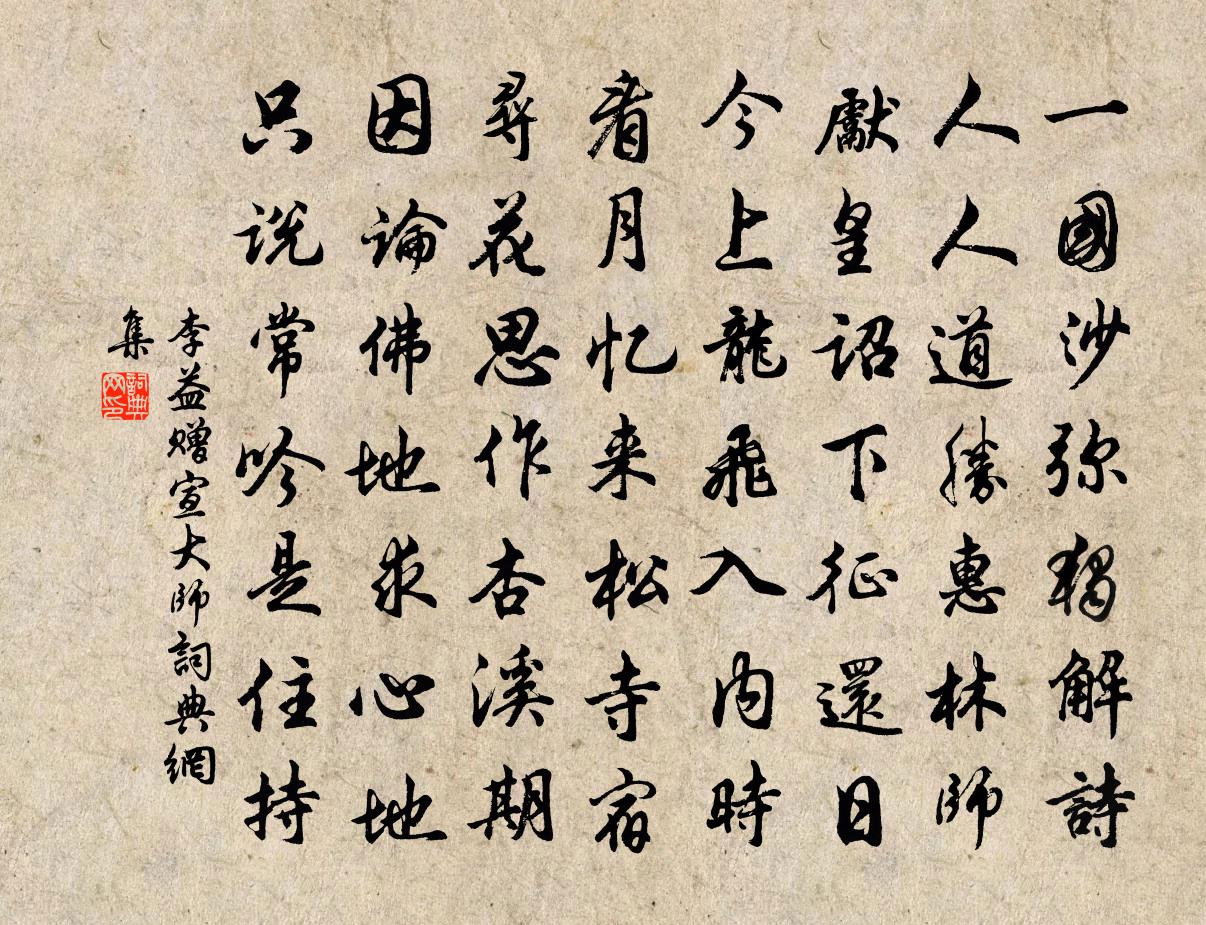 一國沙弥獨解詩
人人道勝惠林師
獻皇詔下征還日
今上龍飛入內時
看月忆来松寺宿
尋花思作杏溪期
因論佛地求心地
只说常吟是住持
李益赠宣大師詞典網
集
詞典网印